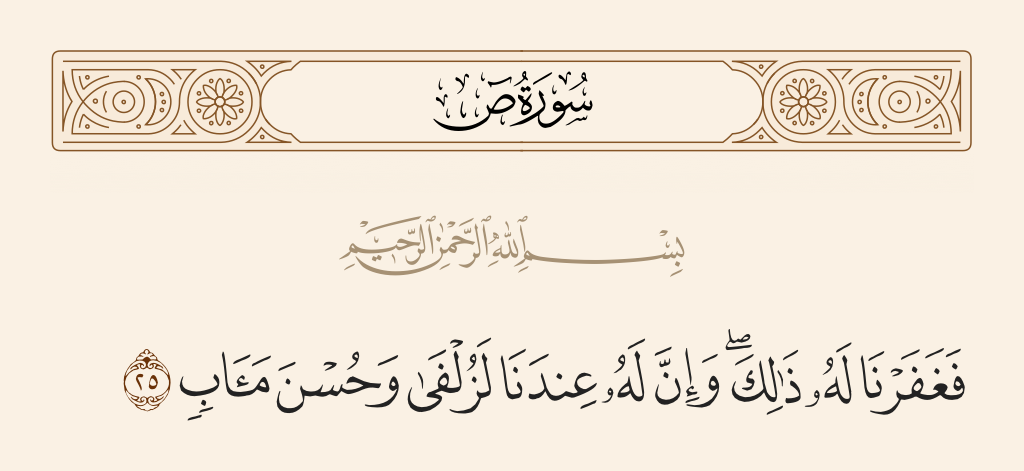 سُورَةُ صٓ
بِسْمِ ٱللَّهِ ٱلرَّحْمَٰنِ ٱلرَّحِيمِ
فَغَفَرْنَا لَهُۥ ذَٰلِكَ ۖ وَإِنَّ لَهُۥ عِندَنَا لَزُلْفَىٰ وَحُسْنَ مَـَٔابٍ ٢٥